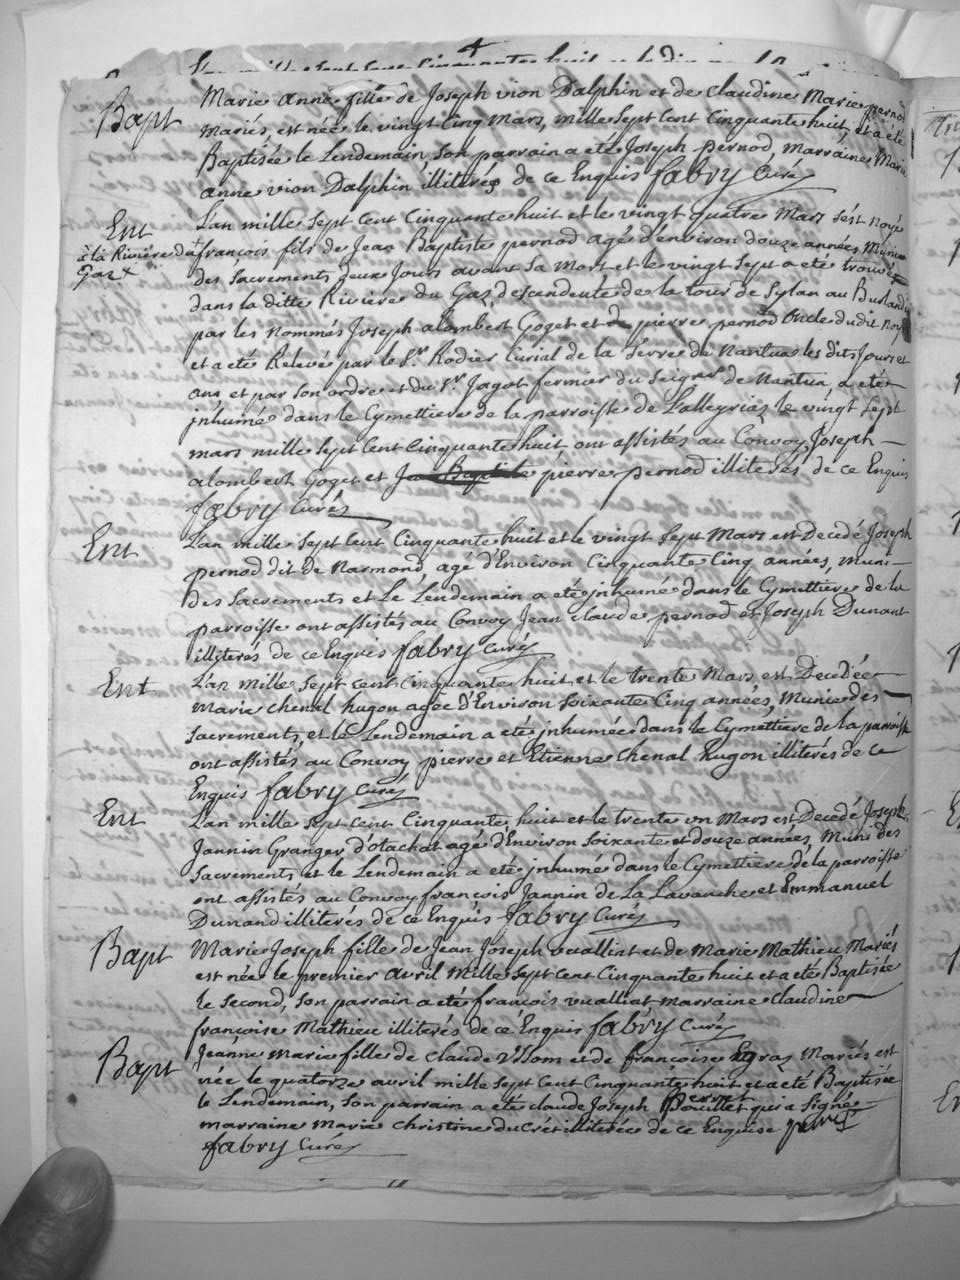 4
L'an mille sept cent cinquante huit et le
Bapt
Marie anne fille de Joseph vion Dalphin et de claudine Marie pernod
Mariés, est née le vingt cinq Mars, mille sept cent cinquante huit, et a eté
Baptisée le Lendemain, son parrain a eté Joseph pernod, marraine Marie
anne vion Dalphin illiterés de ce Enquis fabry Curé
Ent
à la Riviere du
Gaz +
L'an mille sept cent cinquante huit et le vingt quatre Mars s'est noyé
+ francois fils de Jean Baptiste pernod agé d'environ douze années Muni
des Sacrements deux Jours avant sa mort et le vingt sept a eté trouvé
dans la ditte Riviere du Gaz descendente de la tour de Sylan au Burlandi
par les nommés Joseph alombert Goget et pierre pernod oncle dudit noyé
et a eté Relevé par le Sr. Rodier Curial de la Serre de Nantua les dits Jours et
ans et par son ordre et du Sr. Jagot fermier du Seignr de Nantua, a eté
jnhumé dans le Cymettiere de la parroisse de Lalleyriaz le vingt sept
mars mille sept cent cinquante huit ont assistés au Convoy Joseph
alombert Goget et Jean Baptiste pierre pernod illiterés de ce Enquis
fabry Curé
Ent
L'an mille sept cent Cinquante huit et le vingt sept Mars est Decedé Joseph
pernod dit de Narmond, agé d'Environ Cinquante Cinq années, muni
des Sacrements et le Lendemain a eté jnhumé dans le Cymettiere de la
parroisse ont assistés au Convoy Jean claude pernod et Joseph Dunant
illiterés de ce Enquis fabry Curé
Ent
L'an Mille sept cent cinquante huit et le trente Mars est Decedée
Marie chenal hugon agée d'Environ soixante Cinq années, Munie des
Sacrements, et le Lendemain a eté jnhumée dans le Cymettiere de la parroisse
ont assistés au Convoy pierre et Etienne chenal hugon illiterés de ce
Enquis fabry Curé
Ent
L'an mille sept cent Cinquante huit et le trente un Mars est Decedé Joseph
Jannin Granger d'otachat agé d'Environ soixante et douze années, Muni des
Sacrements et le Lendemain a eté jnhumé dans le Cymettiere de la parroisse
ont assistés au Convoy francois Jannin de La Lavanche et Emmanuel
Dunand illiterés de ce Enquis fabry Curé
Bapt
Marie Joseph fille de Jean Joseph vuallint et de Marie Mathieu Mariés
est née le premier avril Mille sept cent Cinquante huit et a eté Baptisée
le second, son parrain a eté francois vualliat marraine claudine
francoise Mathieu illiterés de ce Enquis fabry Curé
Bapt
Jeanne marie fille de claude et de francoise Mariés est
née le quatorze avril mille sept cent Cinquante huit et a eté Baptisée
pernet
le Lendemain, son parrain a eté claude Joseph pouillet qui a signé
marraine Marie christine ducret illiterée de ce Enquise
fabry Curé